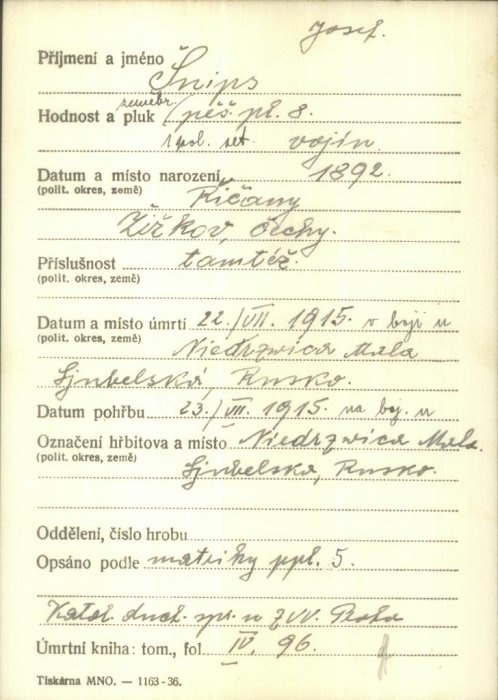 Josef.
Příjmení a jméno Šnips
zeměbr.
Hodnost a pluk pěš. pl. 8.
1 pol. set. vojín
Datum a místo narození 1892.
(polit. okres, země) Říčany
Žižkov, Čechy.
Příslušnost tamtéž.
(polit. okres, země)
Datum a místo úmrtí 22./VII. 1915. v boji u
(polit. okres, země) Niedrzwica Mala
Ljubelská, Rusko.
Datum pohřbu 23./VII. 1915. na boj. u
Označení hřbitova a místo Niedrzwica Mala.
(polit. okres, země)
Ljubelska, Rusko.
Oddělení, číslo hrobu
Opsáno podle matriky ppl. 5.
Katol. duch. spr. u ZVV. Praha
Úmrtní kniha: tom., fol. IV. 96.
Tiskárna MNO. — 1163-36.